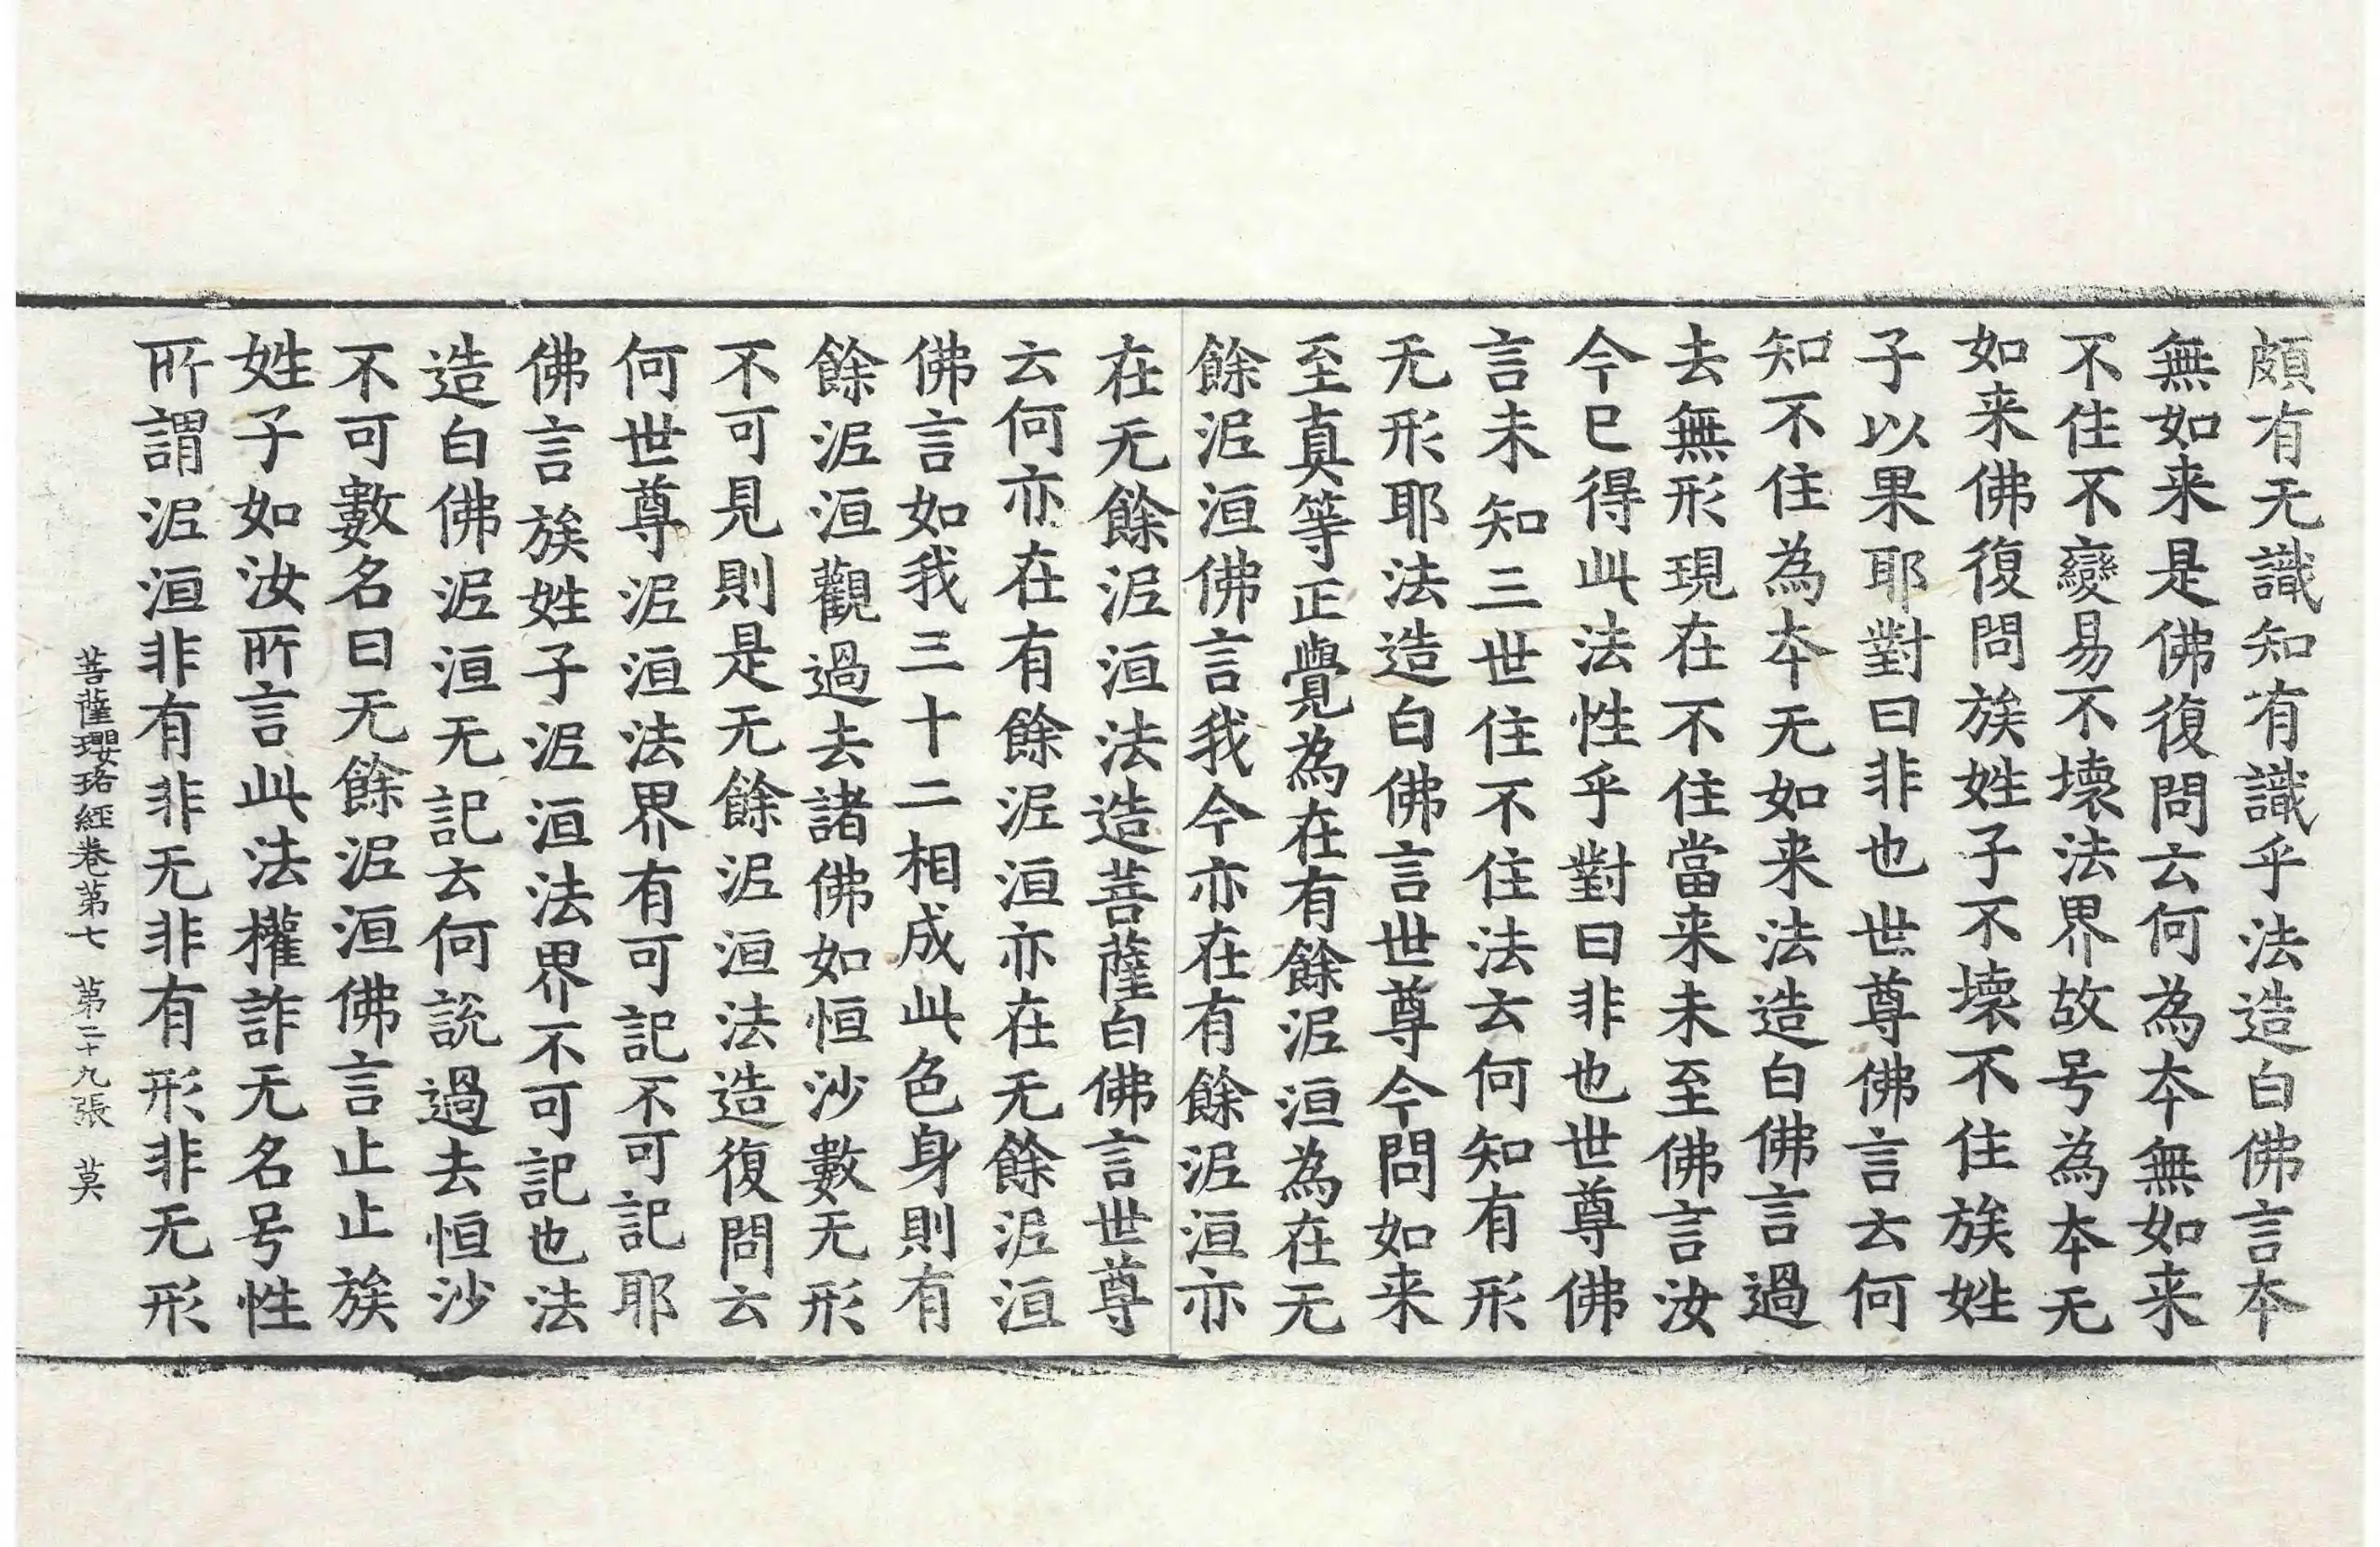 頗有无識知有識乎法造白佛言本
無如来是佛復問云何為本無如来
不住不變易不壞法界故号為本无
如来佛復問族姓子不壞不住族姓
子以果耶對曰非也世尊佛言云何
知不住為本无如来法造白佛言過
去無形現在不住當来未至佛言汝
今已得此法性乎對曰非也世尊佛
言未知三世住不住法云何知有形
无形耶法造白佛言世尊今問如来
至真等正覺為在有餘泥洹為在无
餘泥洹佛言我今亦在有餘泥洹亦
在无餘泥洹法造菩薩白佛言世尊
云何亦在有餘泥洹亦在无餘泥洹
佛言如我三十二相成此色身則有
餘泥洹觀過去諸佛如恒沙數无形
不可見則是无餘泥洹法造復問云
何世尊泥洹法界有可記不可記耶
佛言族姓子泥洹法界不可記也法
造白佛泥洹无記云何說過去恒沙
不可數名曰无餘泥洹佛言止止族
姓子如汝所言此法權詐无名号性
所謂泥洹非有非无非有形非无形
菩薩瓔珞經卷第七 第二十九張 莫